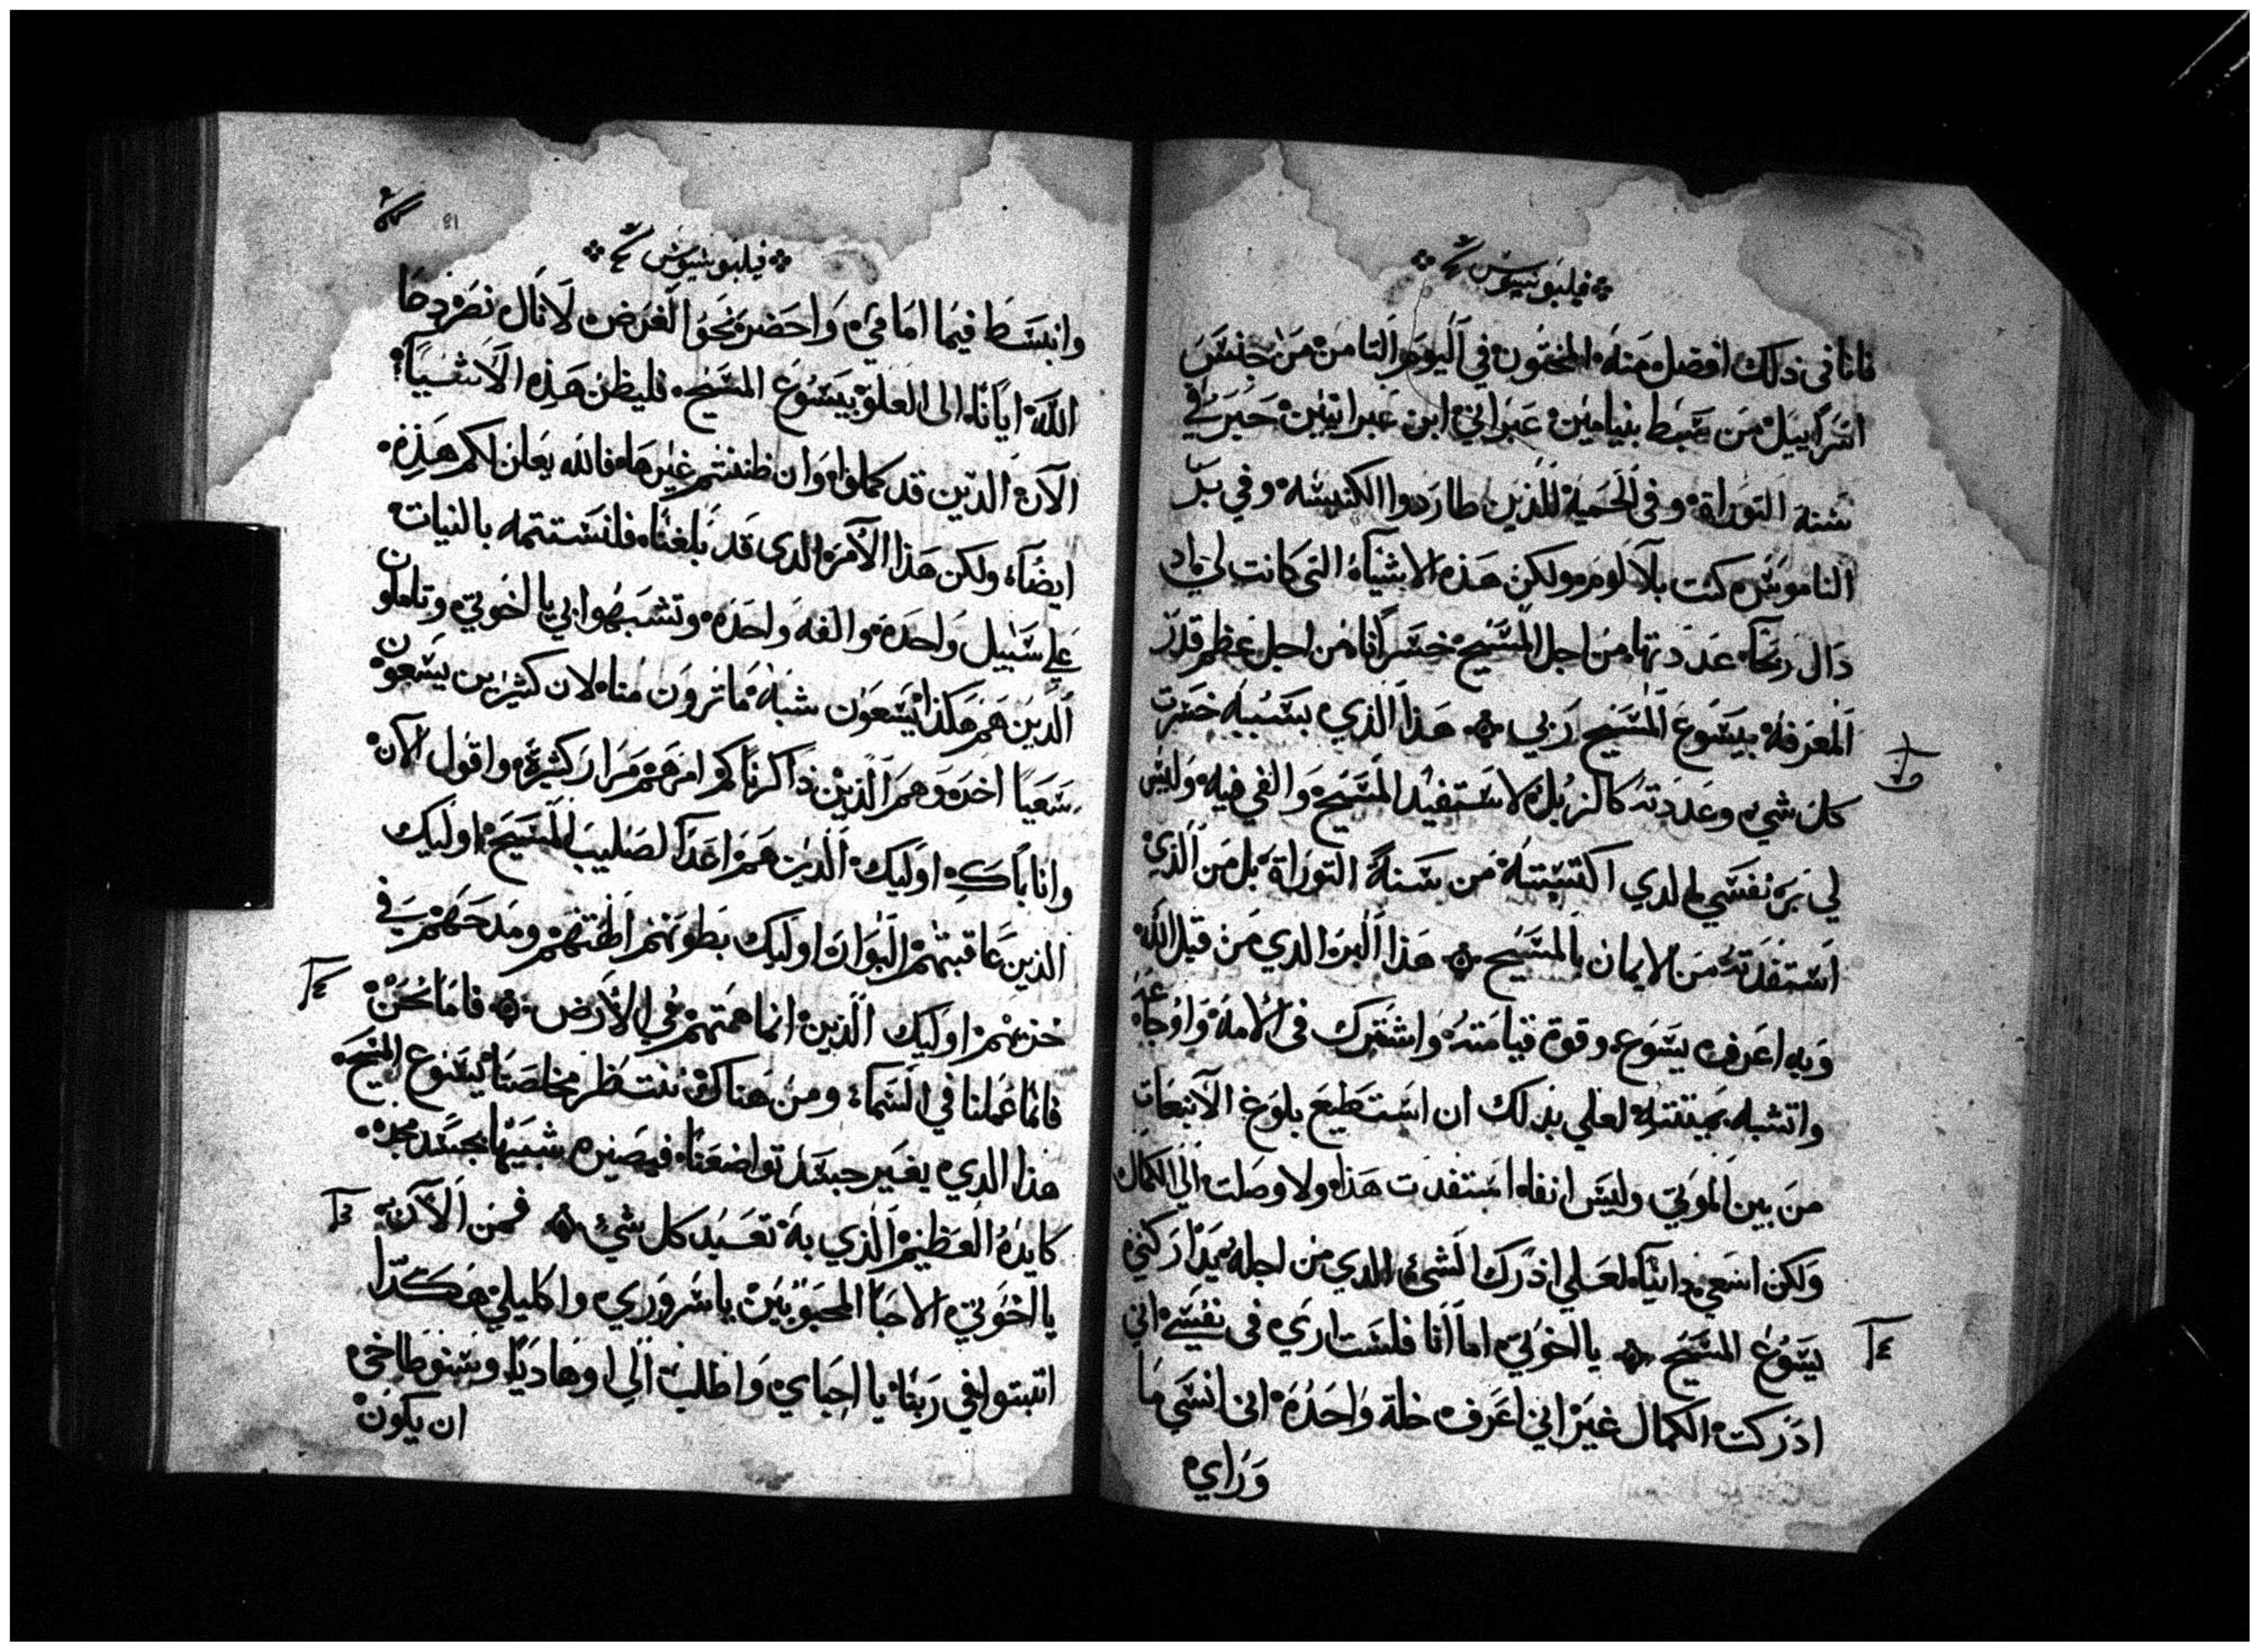 فيلبوسيوس
فانا في ذلك افضل منه المختون في اليوم الثامن من جنس
اسراييل من سبط بنيامين عبراني ابن عبرانيين حبر في
سنة التوراة وفي الحمية للذين طاردوا الكنيسه وفي بر
الناموس كنت بلا لوم ولكن هذه الاشياء التي كانت لي
ذال ربحاً عددتها من اجل المسيح خسراناً من اجل عظم قدر
المعرفة بيسوع المسيح ربي هذا الذي بسببه خسرت
كل شي وعددته كالزبل لاستفيد المسيح والفي فيه وليس
لي بر نفسي الدي اكتسبته من سنة التوراة بل من الذي
استفدته من الايمان بالمسيح هذا البر الدي من قبل الله
وبه اعرف يسوع وقوة قيامته واشترك في الامه واوجاعه
واتشبه بميتته لعلي بذلك ان استطيع بلوغ الانبعاث
من بين الموتي وليس انفا استفدت هذا ولا وصلت الي الكمال
ولكن اسعي دايباً لعلي ادرك الشي الدي من اجله يداركني
يسوع المسيح يا اخوتي اما انا فلست اري في نفسي اني
ادركت الكمال غير اني اعرف خلة واحدة اني انسي ما
وراي
فيلبوسيوس
وانبسط فيما امامي واحضر نحو الغرض لانال نصر دعا
الله ايانا الي العلو بيسوع المسيح فليظن هذه الاشياء
الان الدين قد كملوا وان ظننتم غيرها فالله يعلن لكم هذه
ايضاً ولكن هذا الامر الدي قد بلغناه فلنستتمه بالنيات
علي سبيل واحدة والفه واحدة وتشبهوا بي يا اخوتي وتاملون
الدين هم هكذا يسعون شبه ما ترون منا لان كثيرين يسعون
سعياً اخر وهم الذين ذاكرناكم امرهم مرار كثيرة واقول الان
وانا باكٍ اوليك الدين هم اعدا لصليب المسيح اوليك
الذين عاقبتهم البوار اوليك بطونهم الهتهم ومدحهم في
خزيهم اوليك الذين انما همتهم في الارض فاما نحن
فانما عملنا في السماء ومن هناك ننتظر مخلصنا يسوع المسيح
هذا الدي يغير جسد تواضعنا فيصير شبيهاً بجسد مجده
كايده العظيم الذي به تعبد كل شي فمن الان
يا اخوتي الاحبا المحبوبين يا سروري واكليلي هكذا
اتبتوا في ربنا يا احباي واطلب الي اوهاديا وسنوطاخي
ان يكون